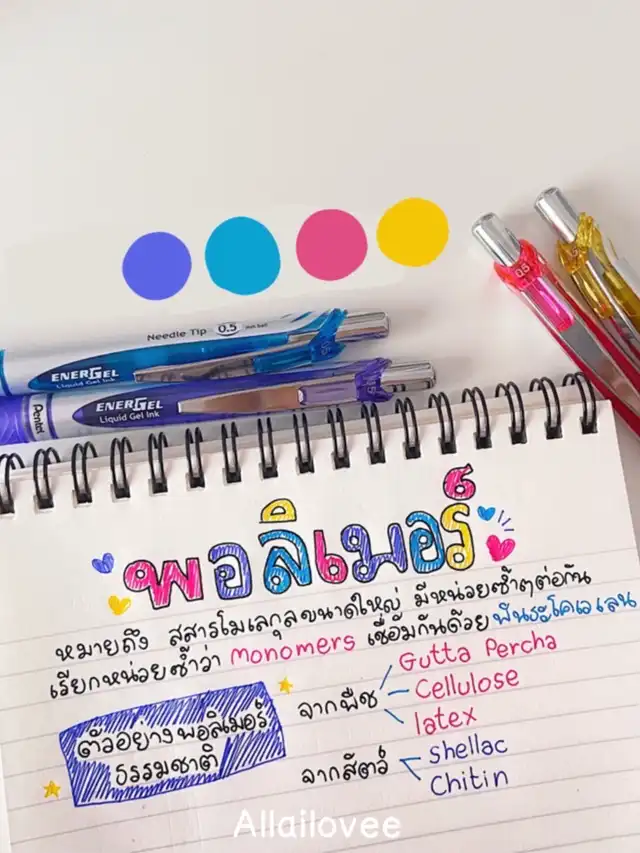 Needle Tip 0.5 mm ball
ENERGEL
Liquid Gel Ink
0.5
Pentel
ENERGEL
Liquid Gel Ink
พอลิเมอร์
หมายถึง สสารโมเลกุลขนาดใหญ่ มีหน่วยซ้ำๆต่อกัน
เรียกหน่วยซ้ำว่า monomers เชื่อมกันด้วยพันธะโคเวเลน
ตัวอย่างพอลิเมอร์
ธรรมชาติ
จากพืช
Gutta Percha
Cellulose
latex
จากสัตว์
Shellac
Chitin
Allailovee